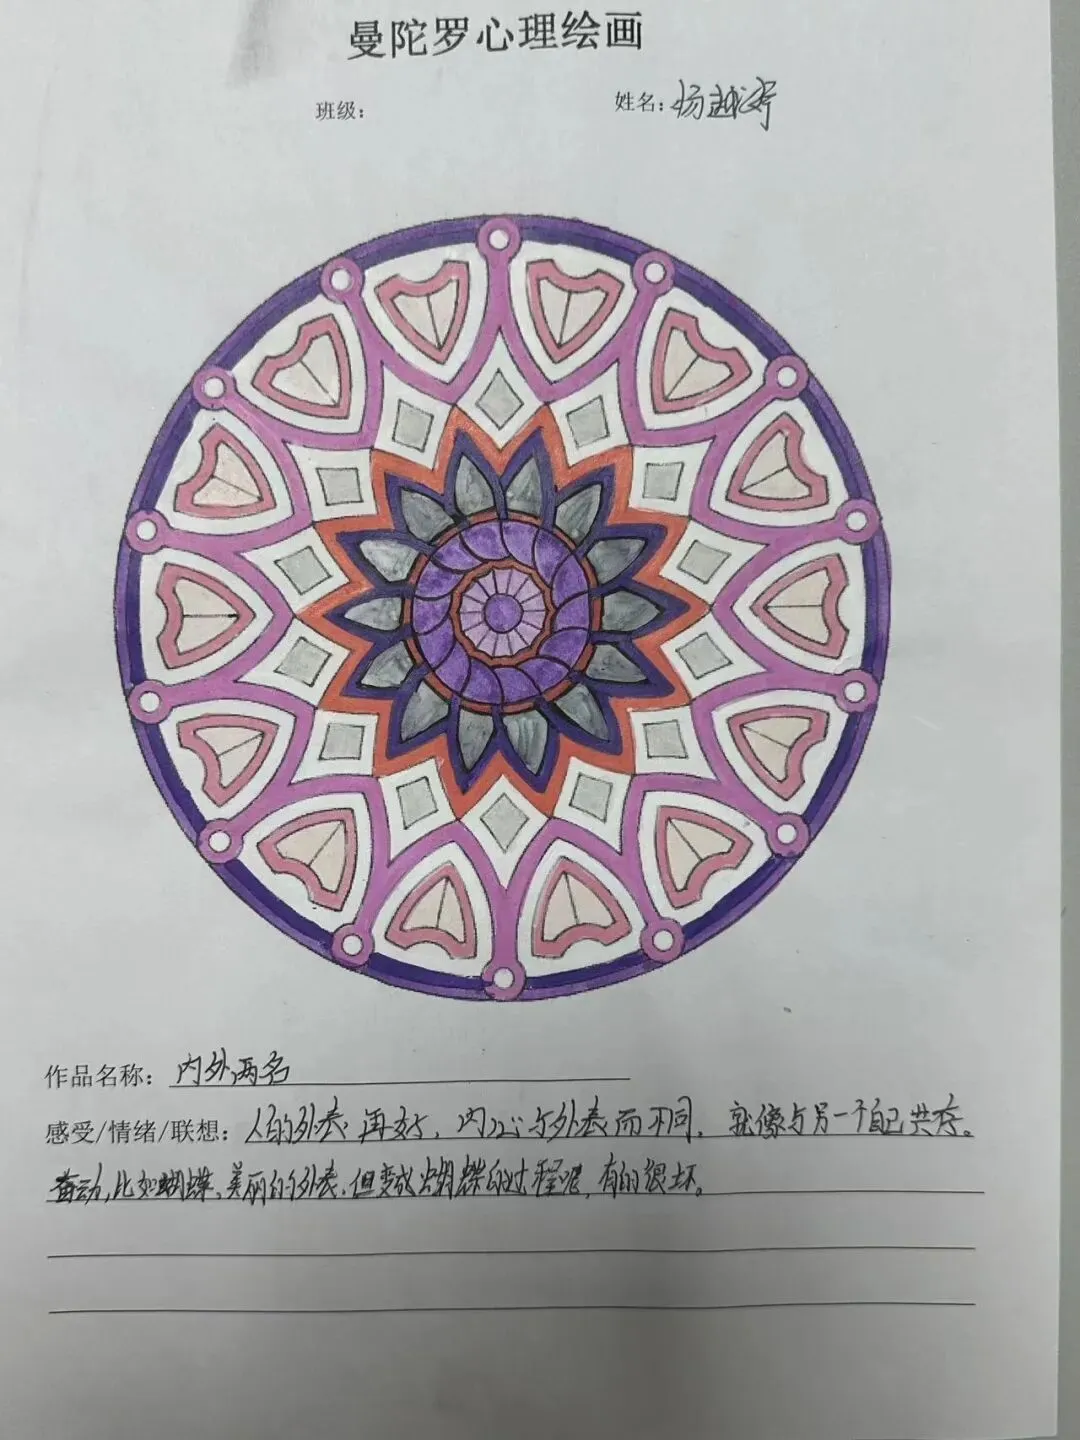 曼陀罗心理绘画
班级：
姓名：杨越婷
作品名称：内外两名
感受/情绪/联想：人的外表再好，内心与外表而不同，就像与另一个自己共存。
奋动，比如蝴蝶，美丽的外表，但变成蝴蝶的过程呢，有的很坏。